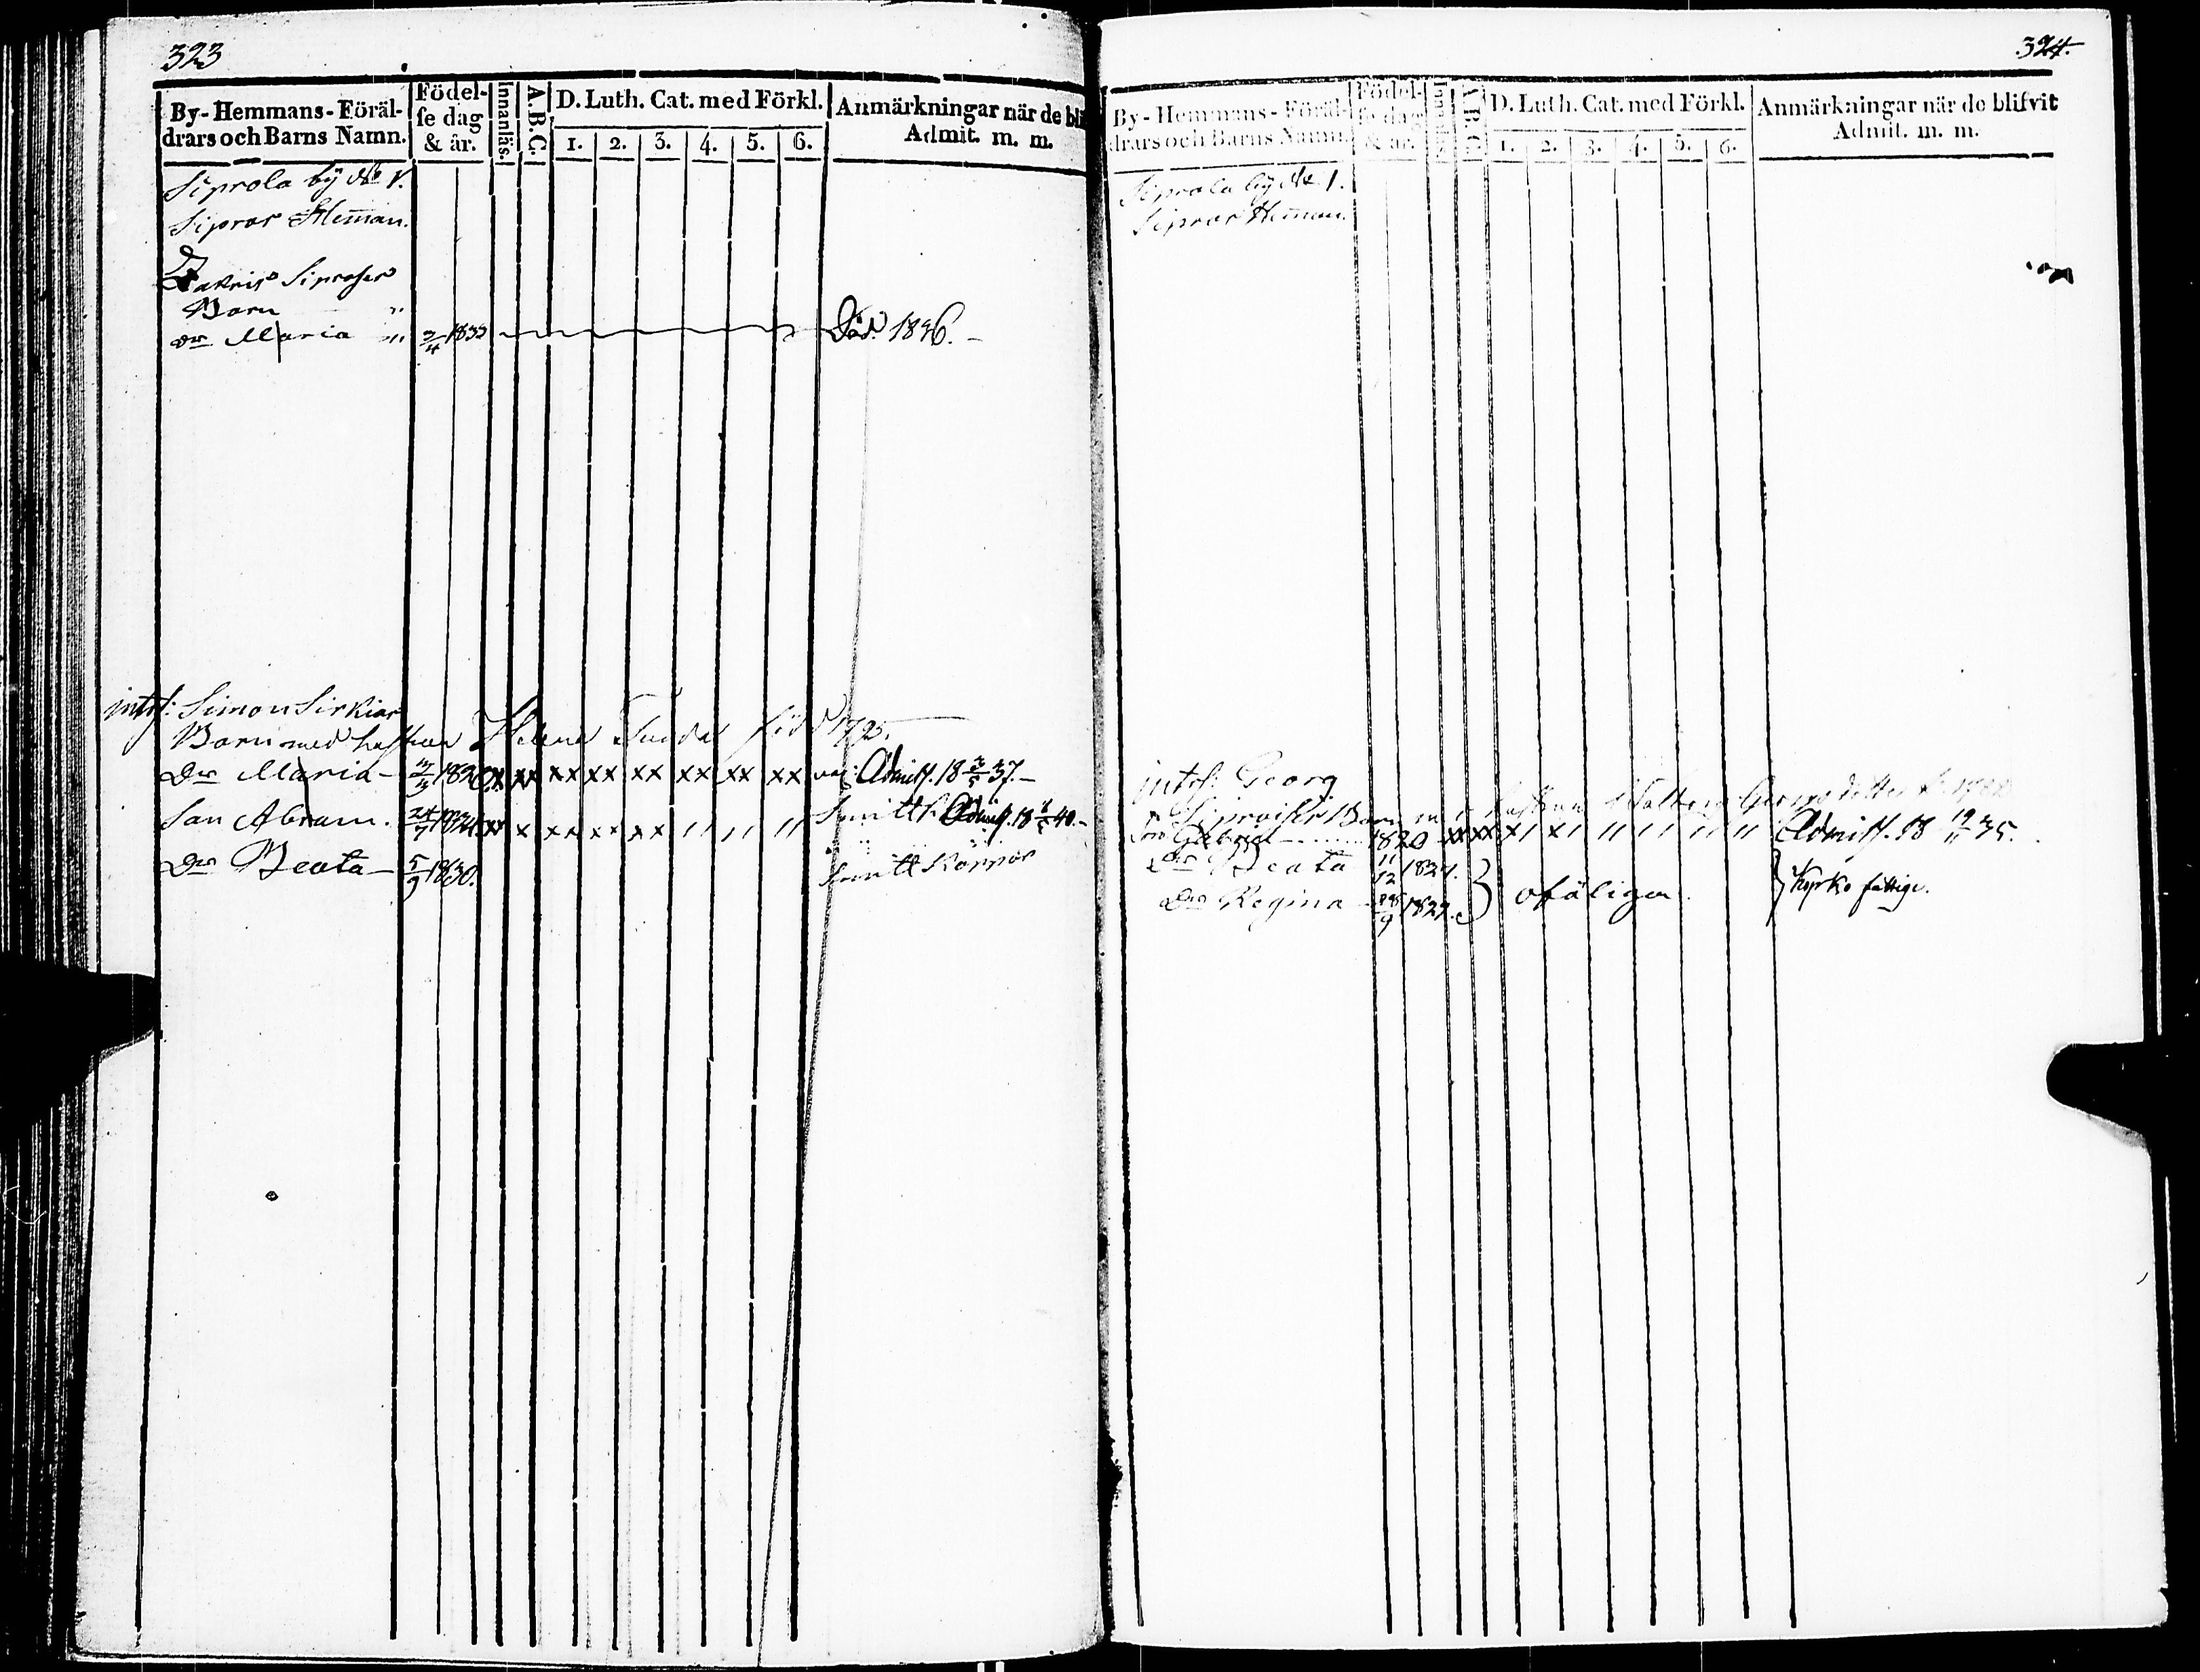 323
By-Hemmans-Föräl-
drars och Barns Namn.
Födel-
se dag
& år.
Innanläs.
A.B.C.
D. Luth. Cat. med Förkl.
1. 2. 3. 4. 5. 6.
Anmärkningar när de bli
Admit. m. m.
Siprola bÿ No 1.
Sipros Hem̄an.
Barn "
dr Maria " 3/4 1833 Död. 1836.
intrs: Simon Sirkiar
Barn med hustrun Helena född 1795.
Dr Maria - 1820 xx xx xx xx xx xx xx xx Admitt. 18 3/5 37.-
Son Abram. 24/7 1824. xx x xx xx xx " " " Admitt. 18 40.-
Dr Beata - 5/9 1830. Smitt Koppor
324.
By-Hemmans-Föräl-
drars och Barns Namn.
Födel-
se dag
& år.
Innanläs.
A.B.C.
D. Luth. Cat. med Förkl.
1. 2. 3. 4. 5. 6.
Anmärkningar när de blifvit
Admit. m. m.
Siprola bÿ No 1.
Sipros Hem̄an.
intrs: Georg
Barn hustrun
Son Gabriel 1820 xx xx x, x, " " " " Admitt. 18 19/11 35.
Dr Beata 11/12 1824.
Dr Regina 1829. } ofäliga } Kyrko fattige.